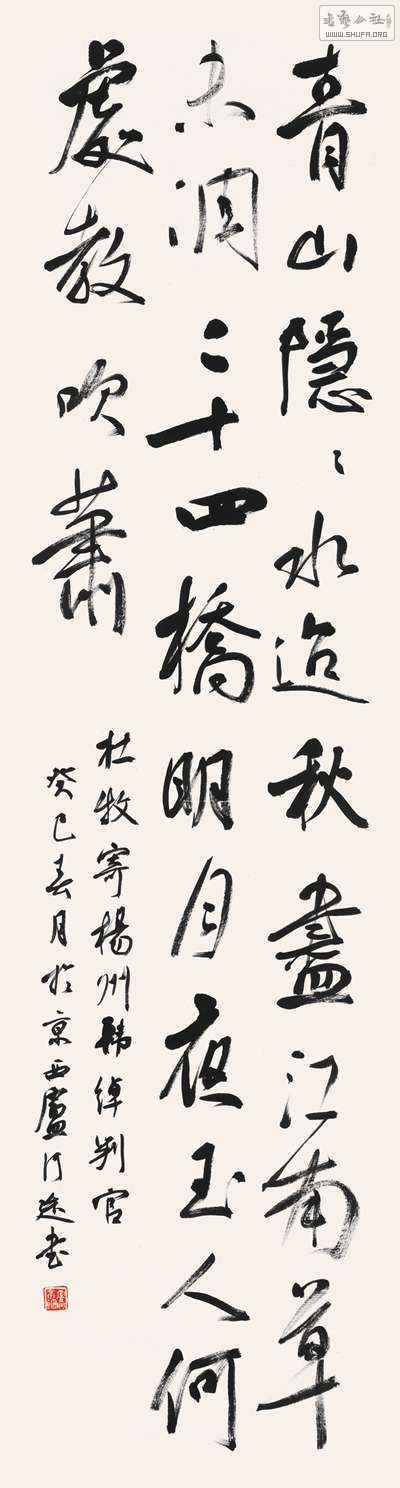 書藝公社
WWW.SHUFA.ORG
青山隱〻水迢秋盡江南草
未凋二十四橋明月夜玉人何
處教吹蕭
杜牧寄楊州韓綽判官
癸巳春月於京西廬